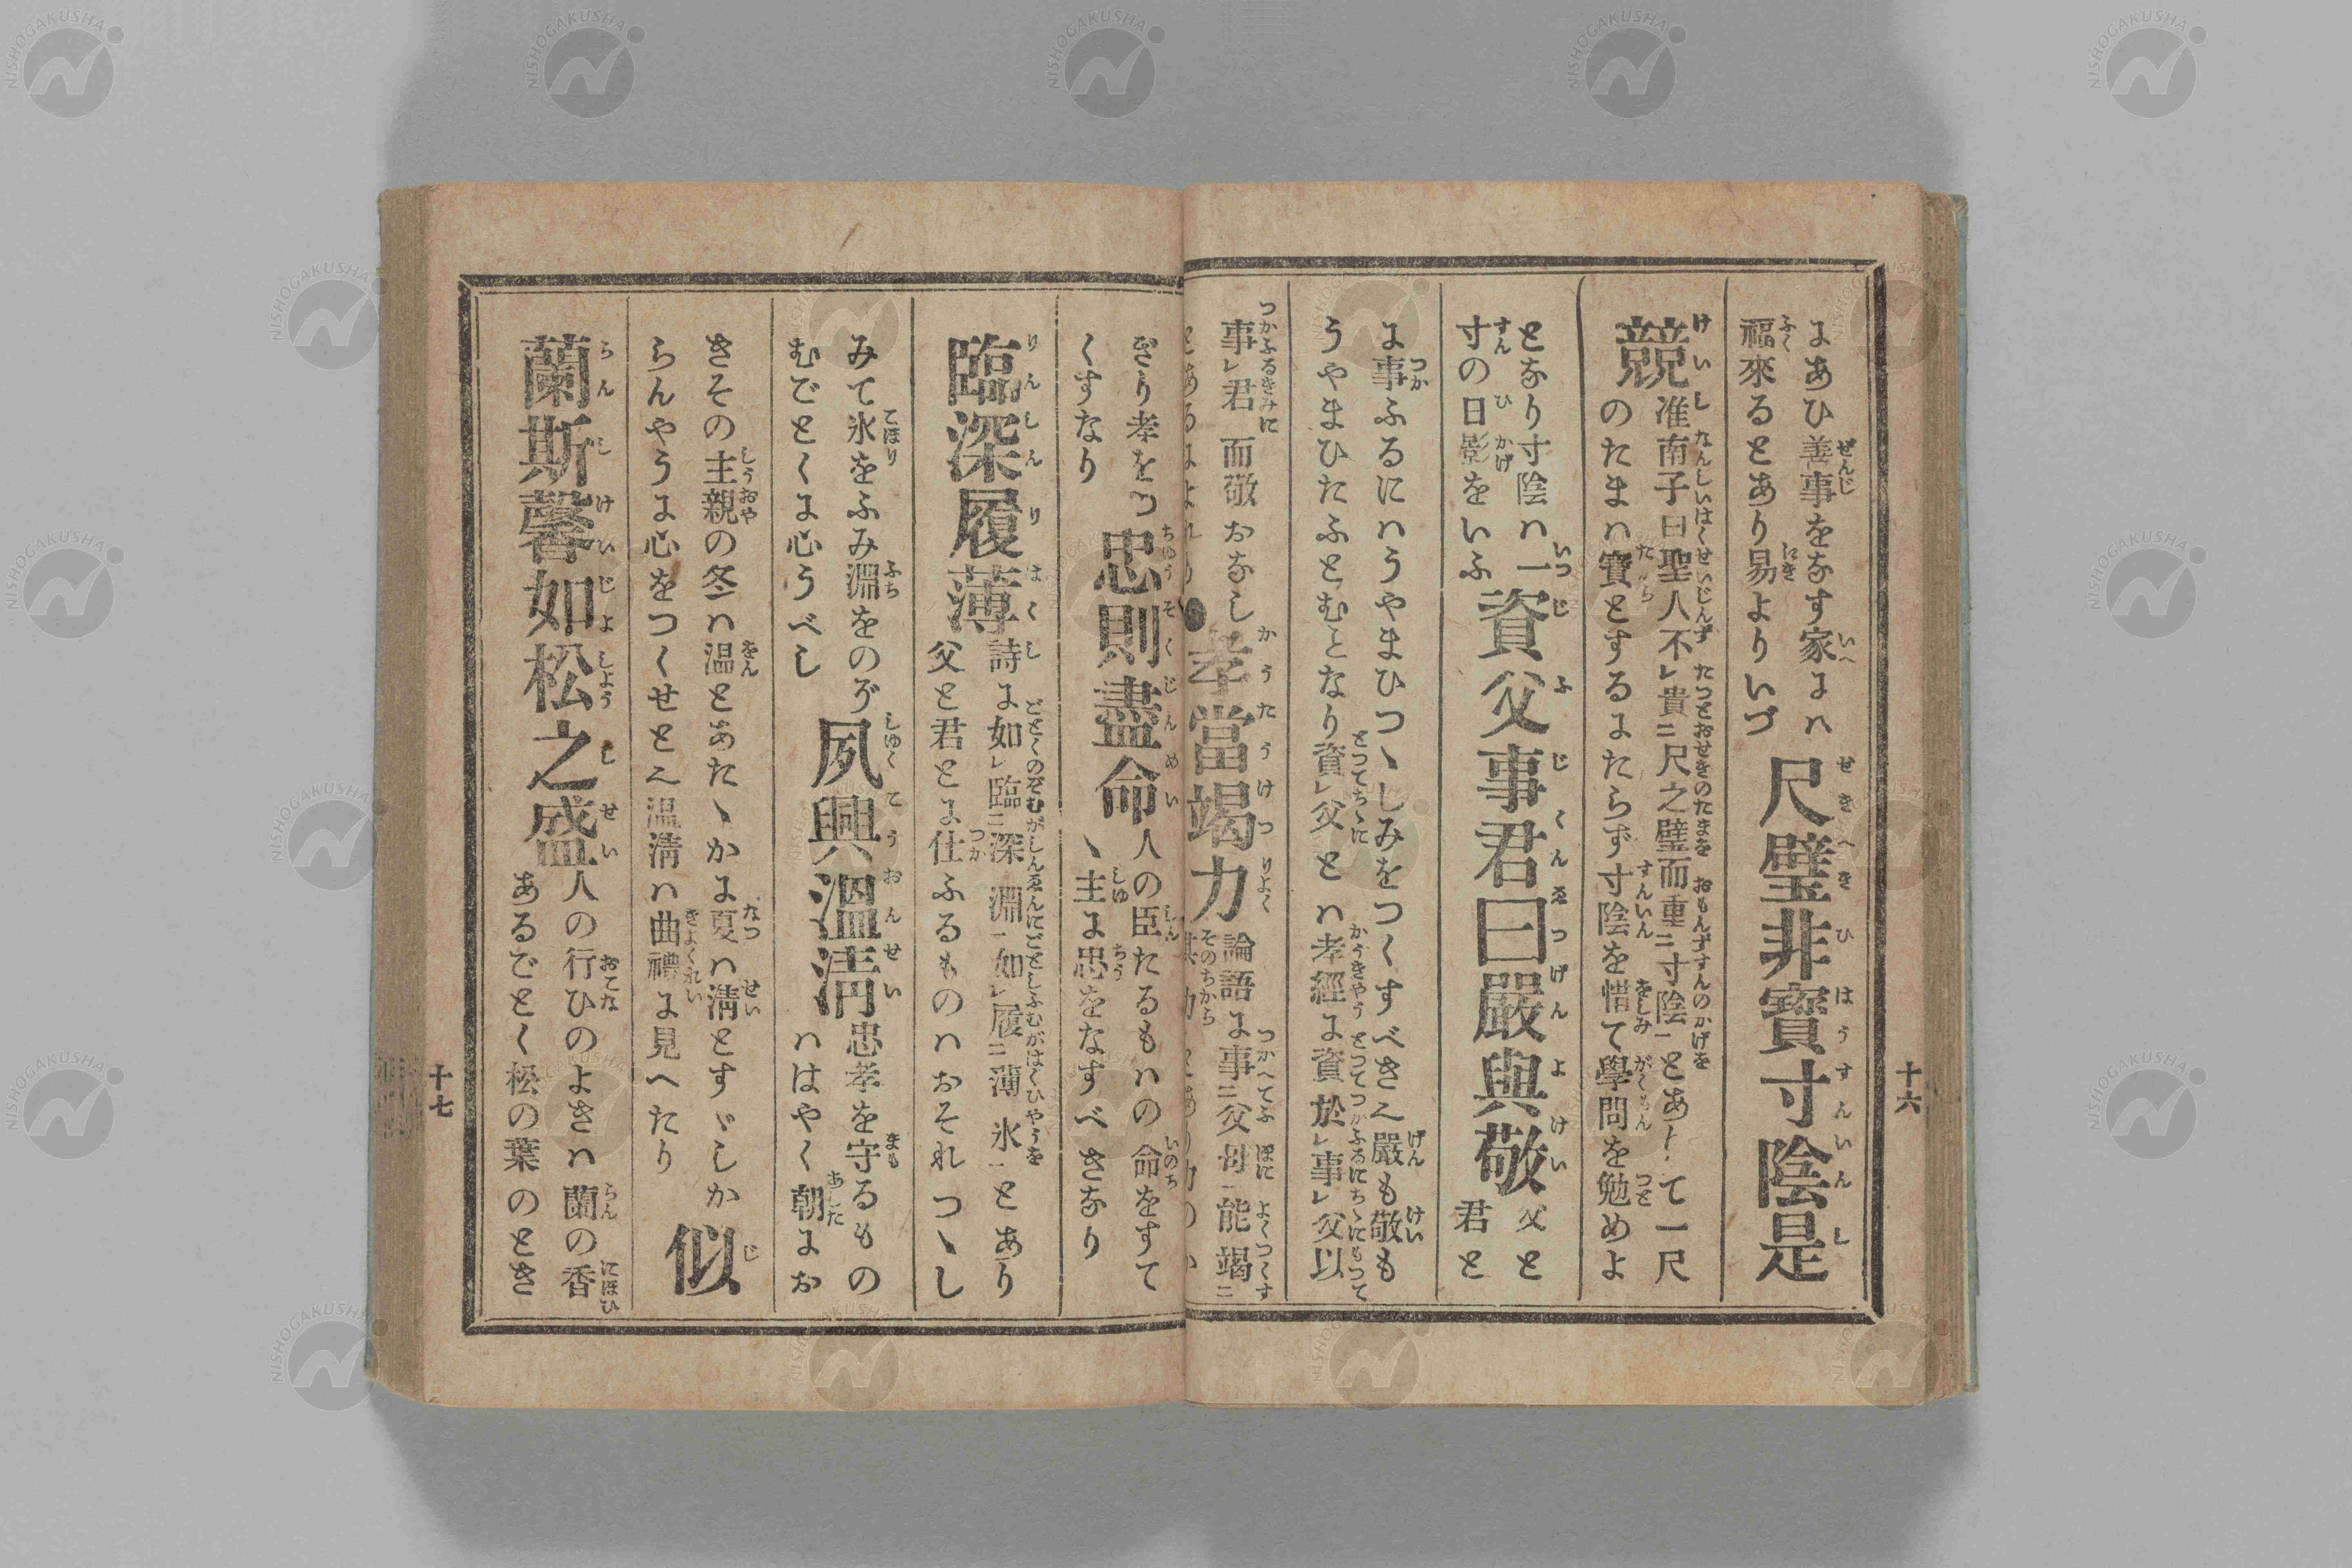 にあひ善事をなす家にハ
福來るとあり易よりいづ
尺璧非寶寸陰是
競
准南子曰聖人不レ貴ニ尺之璧而重ニ寸陰一とありて一尺
のたまハ寶とするにたらず寸陰を惜て學問を勉めよ
となり寸陰ハ一
寸の日影をいふ
資父事君曰嚴與敬
父と
君と
に事ふるにハうやまひつゝしみをつくすべきこ嚴も敬も
うやまひたふとむとなり資レ父とハ孝經に資於レ事レ父以
事レ君而敬おなし
孝當竭力
論語に事ニ父母一能竭ニ
ぎり孝をつ
くすなり
忠則盡命
人の臣たるもハの命をすて
ゝ主に忠をなすべきなり
臨深履薄
詩に如レ臨ニ深淵一如レ履ニ薄氷一とあり
父と君とに仕ふるものハおそれつゝし
みて氷をふみ淵をのぞ
むごとくに心うべし
夙興溫凊
忠孝を守るもの
ハはやく朝にお
きその主親の冬ハ温とあたゝかに夏ハ凊とすゞしか
らんやうに心をつくせとこ温凊ハ曲禮に見へたり
似
蘭斯馨如松之盛
人の行ひのよきハ蘭の香
あるごとく松の葉のとき
十六
十七
NISHOGAKUSHA